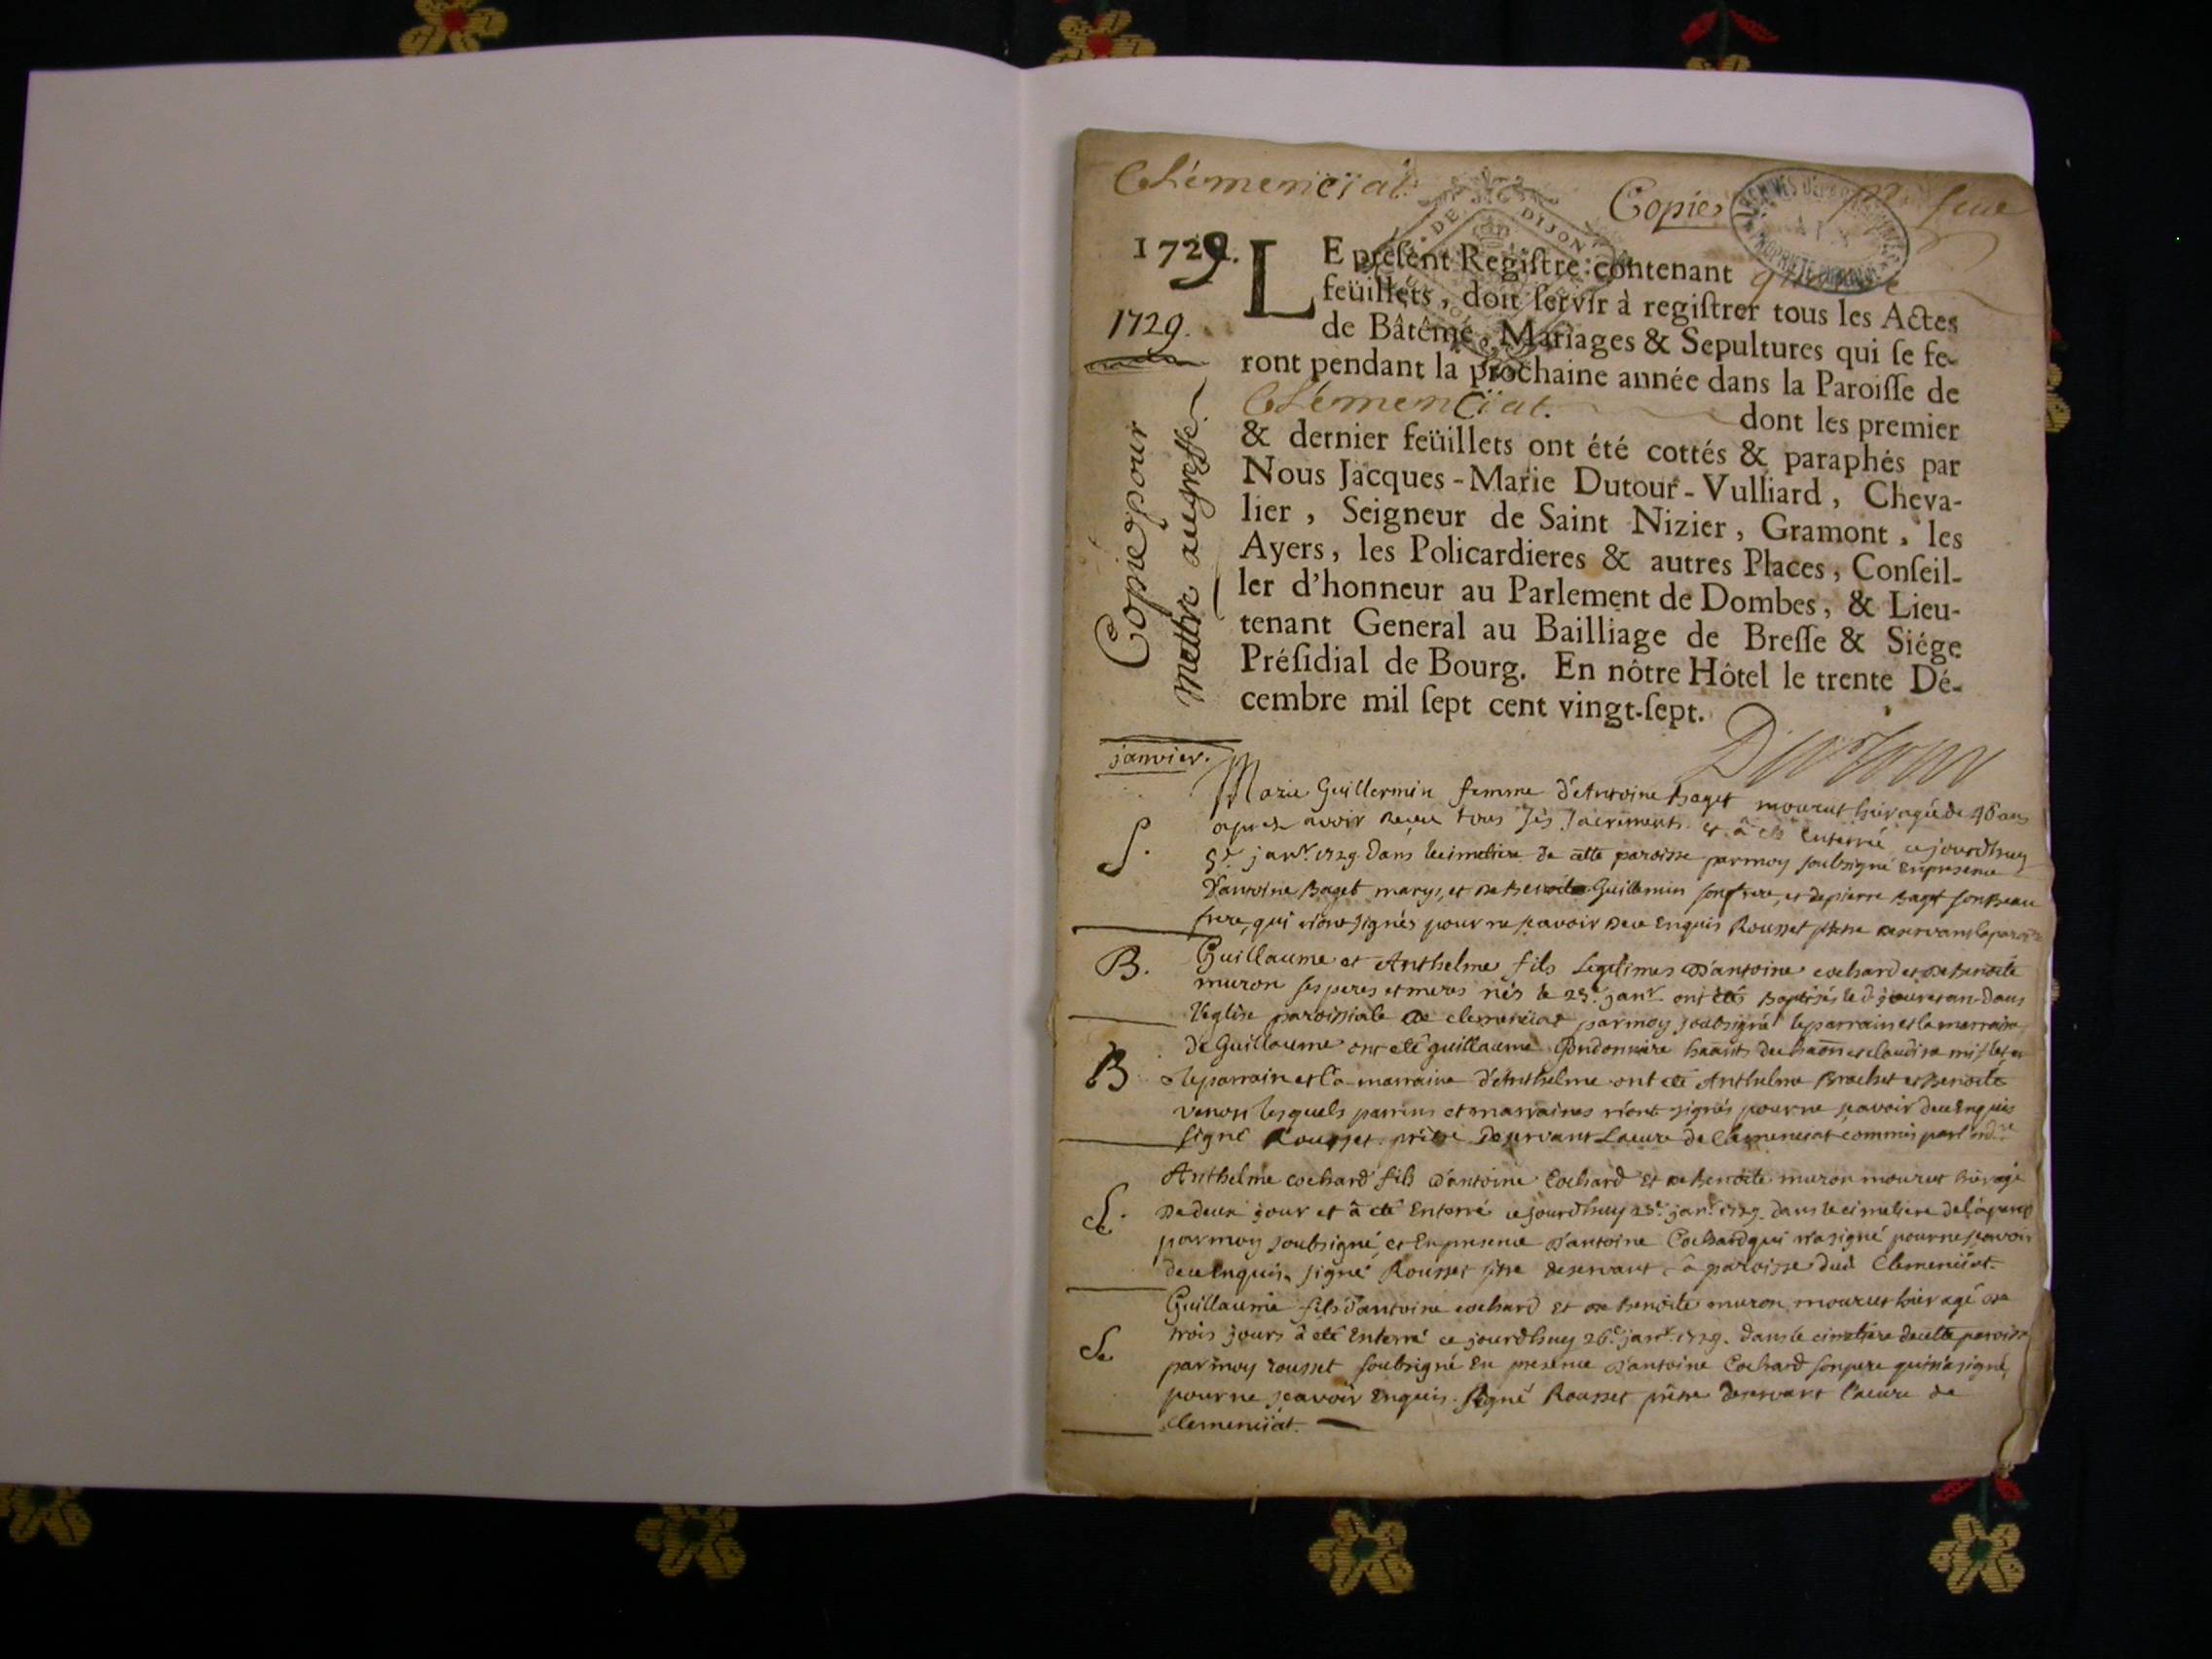 Clémenciat.
Copie
DE DIJON
1729.
LE présent Registre contenant
feüillets, doit servir à registrer tous les Actes
de Bâtême, Mariages & Sepultures qui se fe-
ront pendant la prochaine année dans la Paroisse de
Clémenciat. dont les premier
& dernier feüillets ont été cottés & paraphés par
Nous Jacques-Marie Dutour-Vulliard, Cheva-
lier, Seigneur de Saint Nizier, Gramont, les
Ayers, les Policardieres & autres Places, Conseil-
ler d'honneur au Parlement de Dombes, & Lieu-
tenant General au Bailliage de Bresse & Siége
Présidial de Bourg. En nôtre Hôtel le trente Dé-
cembre mil sept cent vingt-sept.
1729.
Copie pour
mettre au greffe.
janvier.
Marie Guillermin femme d'Antoine Baget mourut hier agée de 46 ans
apres avoir receu tous ses sacrements et â été enterrée ce jourdhuy
S. 5e janr. 1729. dans le cimetiere de cette paroisse par moy soubsigné en presence
D'antoine Baget mary, et de Benoite Guillemin son frere, et de pierre Baget son Beau
frere, qui n'ont signés pour ne sçavoir Deue Enquis Rousset
B. Guillaume et Anthelme fils legitimes D'antoine cochard et de Benoite
muron ses peres et meres nés le 23e janr. ont étés Baptisés le d. jour et an Dans
l'eglise paroissiale de clemenciat par moy soubsigné le parrain et la marraine
de Guillaume ont été guillaume
B le parrain et la marraine d'Anthelme ont été Anthelme Brachet et Benoite
lesquels parrins et marraines n'ont signés pour ne sçavoir deue Enquis
signé Rousset prêtre Deservant La cure de Clemenciat commis
Anthelme cochard fils d'antoine Cochard Et de Benoite muron mourut hier agé
S. De deux jour et â été Enterré ce jourdhuy 25e janr. 1729. dans le cimetiere
par moy soubsigné, et En presence D'antoine Cochard qui n'a signé pour ne sçavoir
deue Enquis. signé Rousset deservant la paroisse dud. Clemenciat.
Guillaume fils d'antoine cochard Et de Benoite muron, mourut hier agé de
S. trois jours â été Enterré ce jourdhuy 26e janr. 1729. dans le cimetiere de cette paroisse
par moy rousset soubsigné En presence D'antoine Cochard son pere qui n'a signé,
pour ne sçavoir Enquis. signé Rousset prêtre deservant la cure de
Clemenciat.